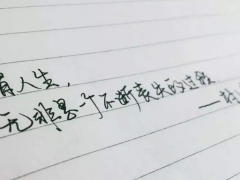 人生,
无非是一个不断丧失的过程
——村